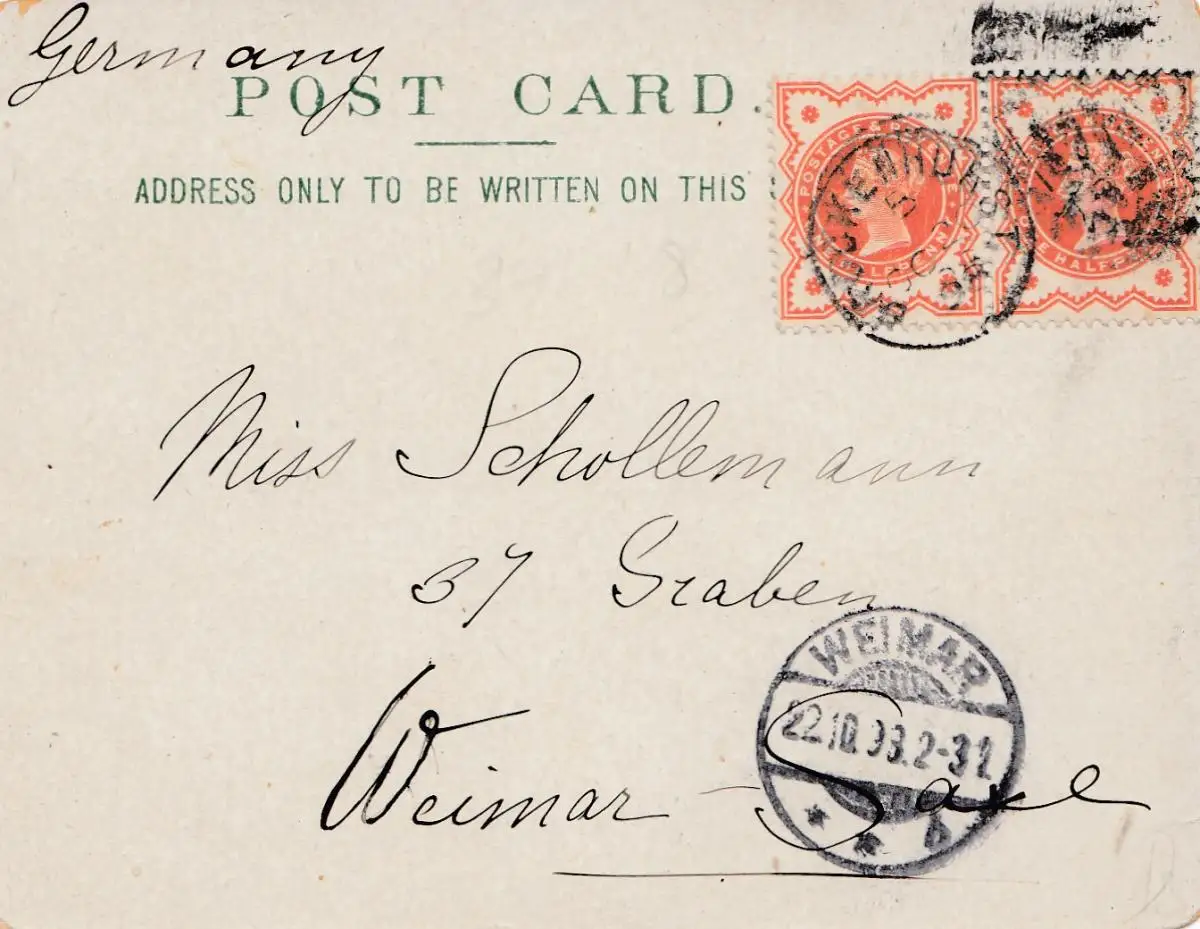 Germany
POST CARD.
ADDRESS ONLY TO BE WRITTEN ON THIS
POSTAGE & REVENUE
HALFPENNY
BROCKENHURST
ONE HALF
Miss Schollemann
37 Graben
Weimar - Saxe
WEIMAR
22.10.98.2-3
b